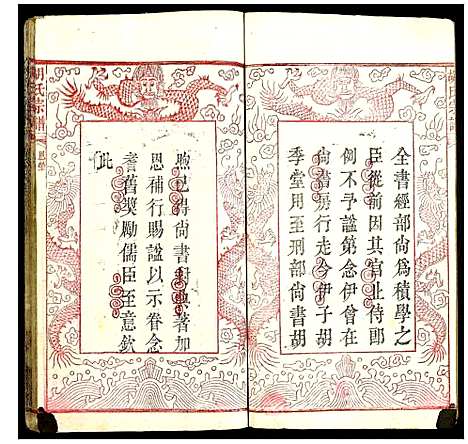 全書經部尚為積學之
臣從前因其官止侍郎
例不予諡第念伊曾在
尚書房行走今伊子胡
季堂用至刑部尚書胡
煦已得尚書封典著加
恩補行賜諡以示眷念
耆舊獎勵儒臣至意欽
此
胡氏宗譜